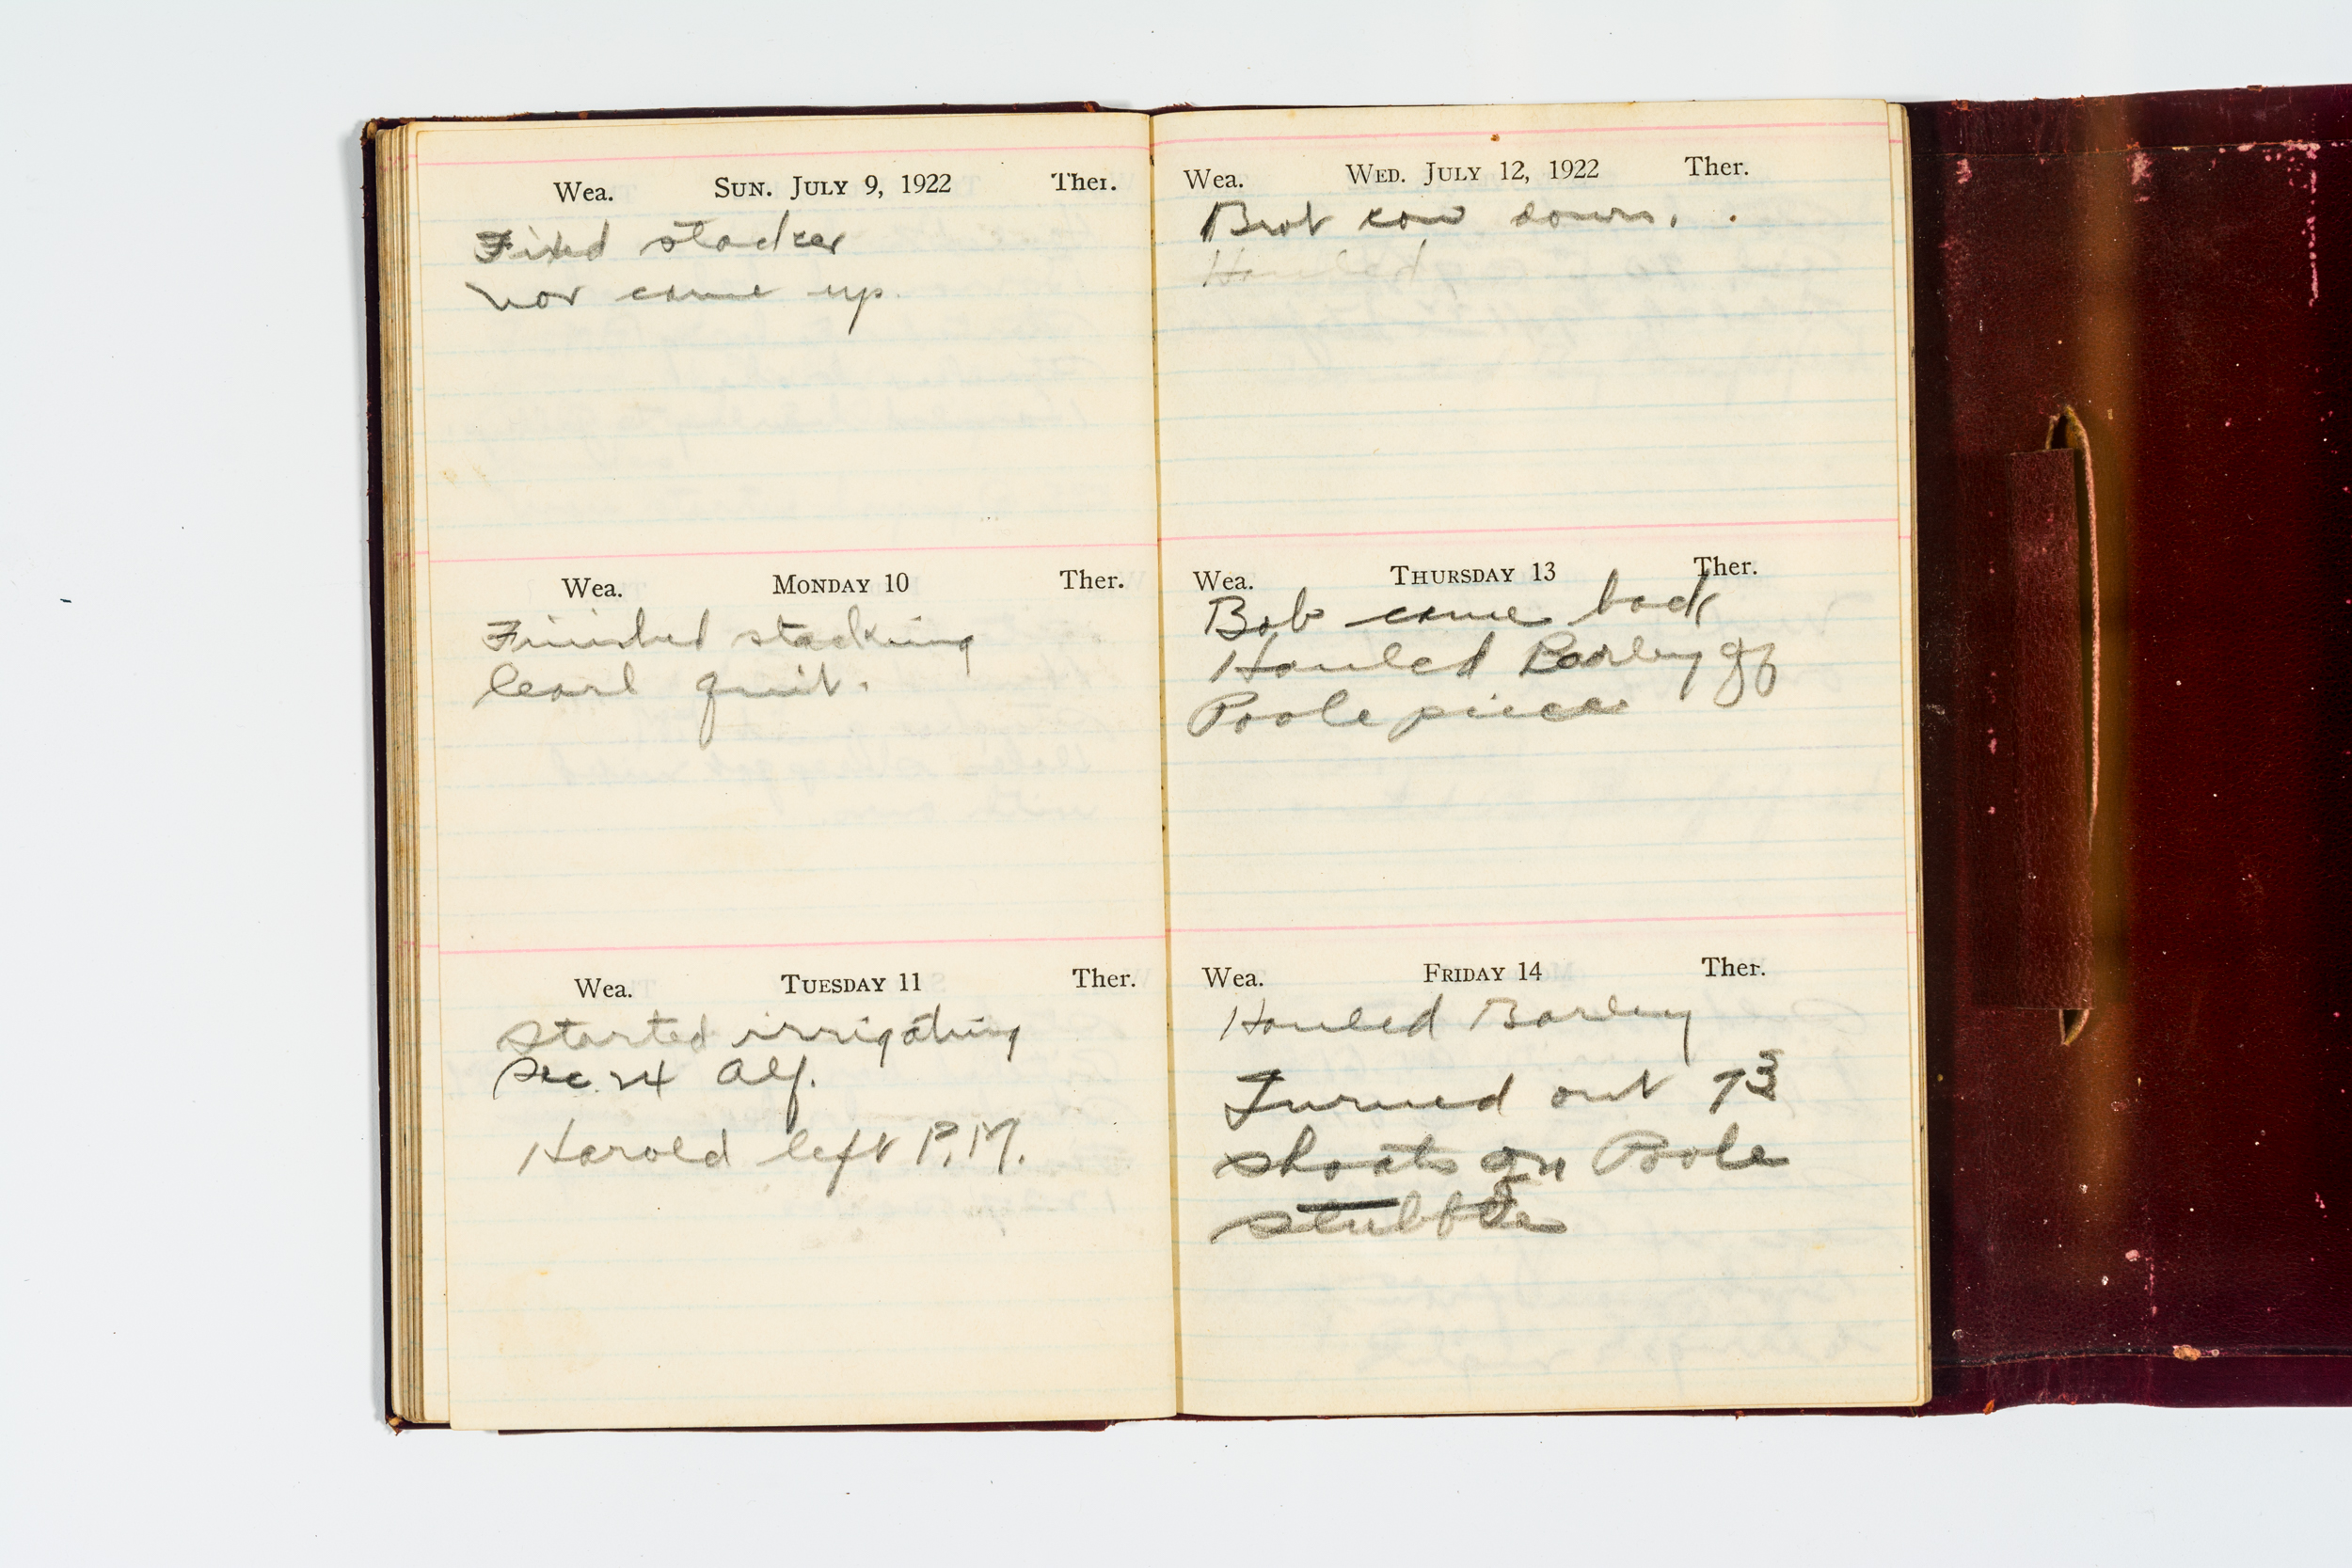 Wea. SUN. JULY 9, 1922 Ther.
Fixed stacker
Nor came up.
Wea. MONDAY 10 Ther.
Finished stacking
Cearl quit.
Wea. TUESDAY 11 Ther.
Started irrigating
Sec 24 Alf.
Harold left P.M.
Wea. WED. JULY 12, 1922 Ther.
Brot cow down.
Hauled
Wea. THURSDAY 13 Ther.
Bob came back
Hauled Barley off
Poole piece
Wea. FRIDAY 14 Ther.
Hauled Barley
Turned out 73
shoats on Poole
stubble